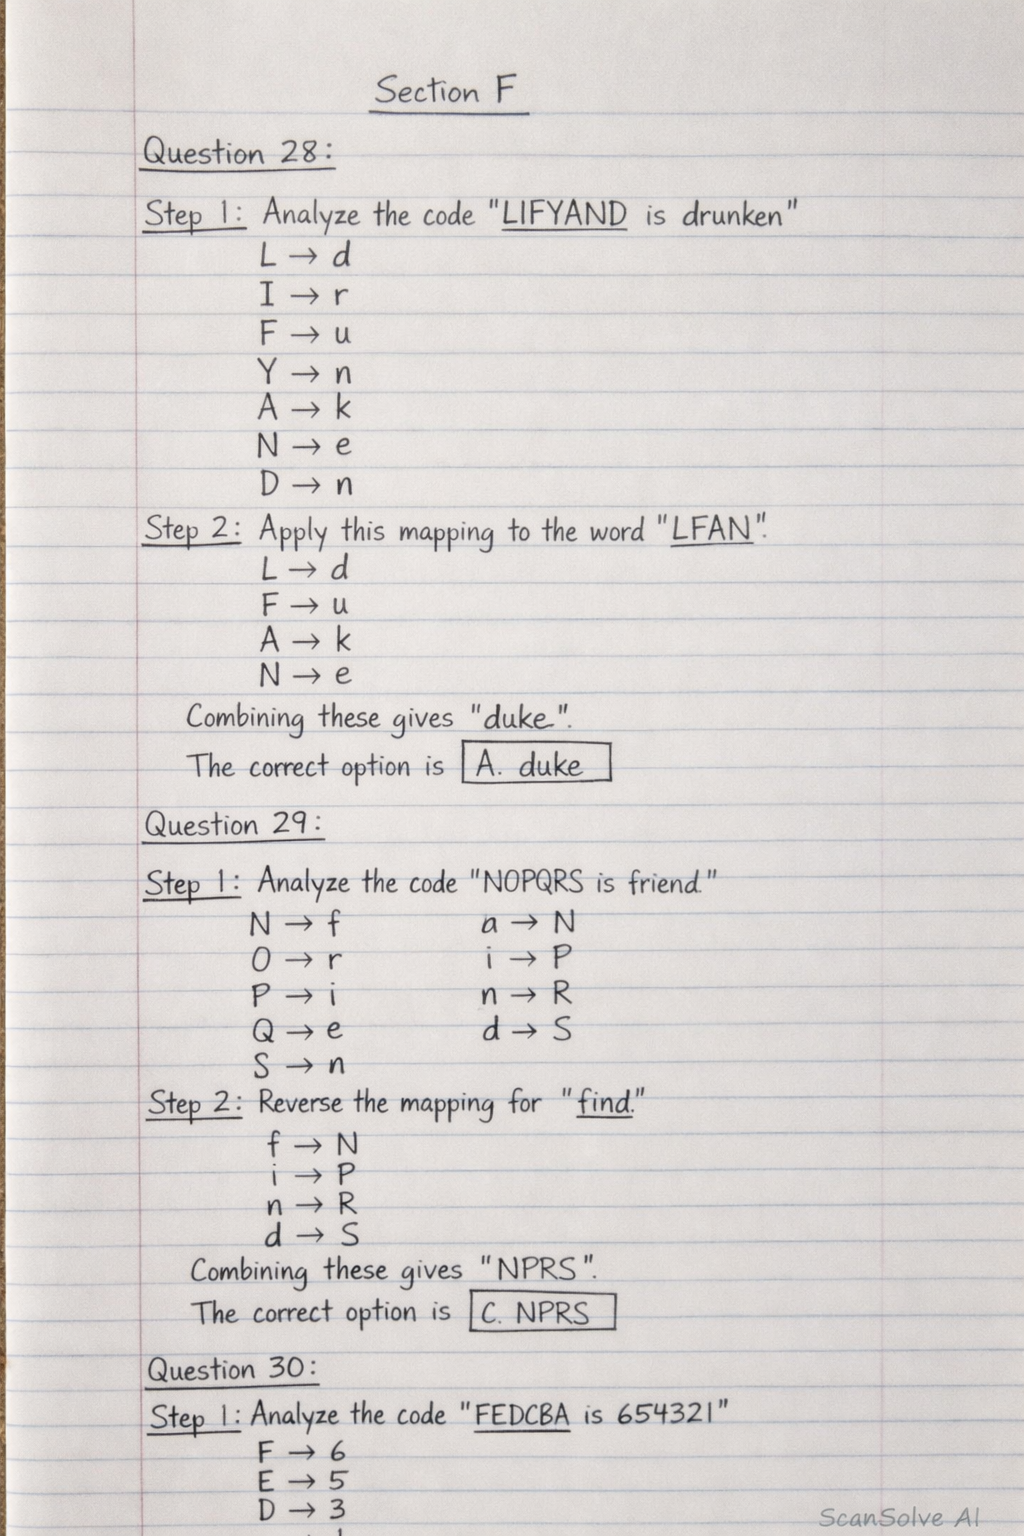 Section F
Question 28:
Step 1: Analyze the code "LIFYAND is drunken"
L → d
I → r
F → u
Y → n
A → k
N → e
D → n
Step 2: Apply this mapping to the word "LFAN".
L → d
F → u
A → k
N → e
Combining these gives "duke".
The correct option is A. duke
Question 29:
Step 1: Analyze the code "NOPQRS is friend."
N → f a → N
O → r i → P
P → i n → R
Q → e d → S
S → n
Step 2: Reverse the mapping for "find."
f → N
i → P
n → R
d → S
Combining these gives "NPRS".
The correct option is C. NPRS
Question 30:
Step 1: Analyze the code "FEDCBA is 654321"
F → 6
E → 5
D → 3
ScanSolve AI